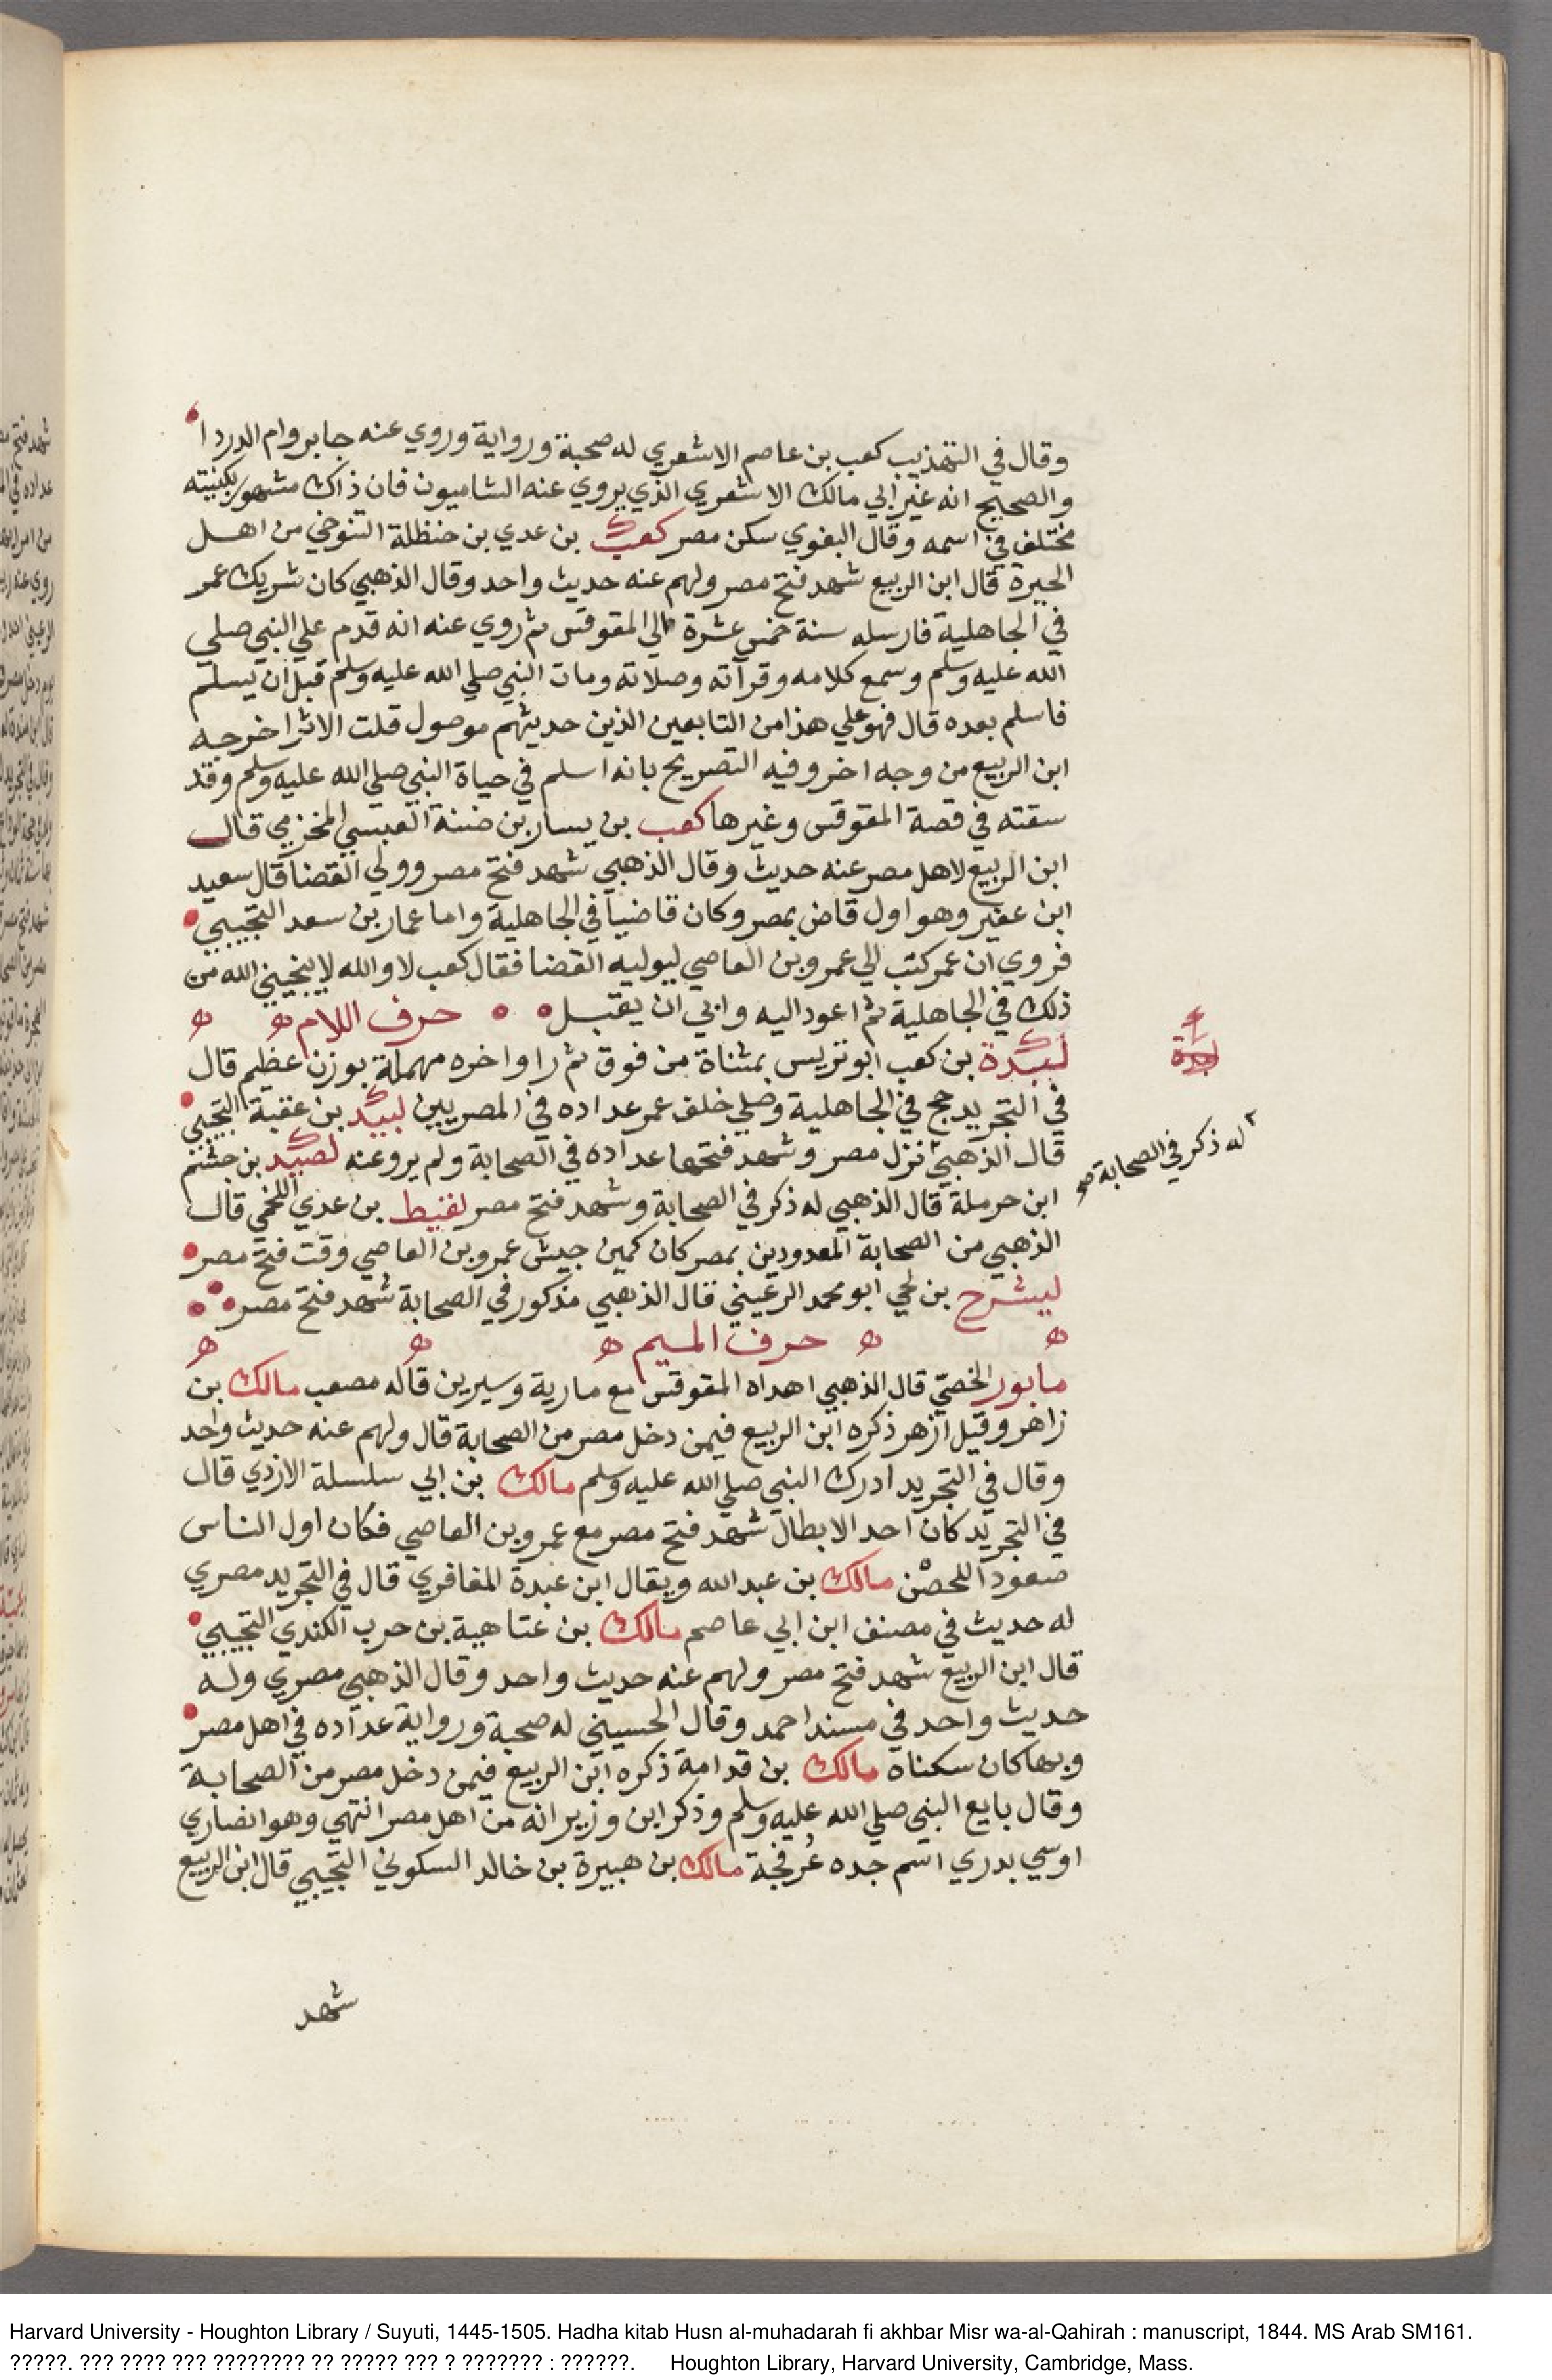 وقال في التهذيب كعب بن عاصم الاشعري له صحبة ورواية وروي عنه جابر وام الدردا
والصحيح انه غير ابي مالك الاشعري الذي يروي عنه الشاميون فان ذاك مشهور بكنيته
مختلف في اسمه وقال البغوي سكن مصر كعب بن عدي بن حنظلة التنوخي من اهل
الحيرة قال ابن الربيع شهد فتح مصر ولهم عنه حديث واحد وقال الذهبي كان شريك عمر
في الجاهلية فارسله سنة خمس عشرة الي المقوقس ثم روي عنه انه قدم علي النبي صلي
الله عليه وسلم وسمع كلامه وقرآته وصلاته ومات النبي صلي الله عليه وسلم قبل ان يسلم
فاسلم بعده قال فهو علي هذا من التابعين الذين حديثهم موصول قلت الاثر اخرجه
ابن الربيع من وجه اخر وفيه التصريح بانه اسلم في حياة النبي صلي الله عليه وسلم وقد
سقته في قصة المقوقس وغيرها كعب بن يسار بن ضنة العبسي المخزمي قال
ابن الربيع لاهل مصر عنه حديث وقال الذهبي شهد فتح مصر وولي القضا قال سعيد
ابن عفير وهو اول قاض بمصر وكان قاضيا في الجاهلية واما عمار بن سعد التجيبي
فروي ان عمر كتب الي عمرو بن العاصي ليوليه القضا فقال كعب لا والله لا ينجيني الله من
ذلك في الجاهلية ثم اعود اليه وابي ان يقبل حرف اللام
لبيدة بن كعب ابو تريس بمثناة من فوق ثم را واخره مهملة بوزن عظيم قال
في التجريد حج في الجاهلية وصلي خلف عمر عداده في المصريين لبيد بن عقبة التجيبي
قال الذهبي نزل مصر وشهد فتحها عداده في الصحابة ولم يرو عنه لصيد بن جشم
له ذكر في الصحابة صح
ابن حرملة قال الذهبي له ذكر في الصحابة وشهد فتح مصر لقيط بن عدي اللخمي قال
الذهبي من الصحابة المعدودين بمصر كان كمين جيش عمرو بن العاصي وقت فتح مصر
ليشرح بن لحي ابو محمد الرعيني قال الذهبي مذكور في الصحابة شهد فتح مصر
حرف الميم
مابور الخصي قال الذهبي اهداه المقوقس مع مارية وسيرين قاله مصعب مالك بن
زاهر وقيل ازهر ذكره ابن الربيع فيمن دخل مصر من الصحابة قال ولهم عنه حديث واحد
وقال في التجريد ادرك النبي صلي الله عليه وسلم مالك بن ابي سلسلة الازدي قال
في التجريد كان احد الابطال شهد فتح مصر مع عمرو بن العاصي فكان اول الناس
صعودا للحصن مالك بن عبد الله ويقال ابن عبدة المغافري قال في التجريد مصري
له حديث في مصنف ابن ابي عاصم مالك بن عتاهية بن حرب الكندي التجيبي
قال ابن الربيع شهد فتح مصر ولهم عنه حديث واحد وقال الذهبي مصري وله
حديث واحد في مسند احمد وقال الحسيني له صحبة ورواية عداده في اهل مصر
وبها كان سكناه مالك بن قدامة ذكره ابن الربيع فيمن دخل مصر من الصحابة
وقال بايع النبي صلي الله عليه وسلم وذكر ابن وزير انه من اهل مصر انتهي وهو انصاري
اوسي بدري اسم جده عرفجة مالك بن هبيرة بن خالد السكوني التجيبي قال ابن الربيع
شهد
Harvard University - Houghton Library / Suyuti, 1445-1505. Hadha kitab Husn al-muhadarah fi akhbar Misr wa-al-Qahirah : manuscript, 1844. MS Arab SM161.
?????. ??? ???? ??? ???????? ?? ????? ??? ? ??????? : ??????. Houghton Library, Harvard University, Cambridge, Mass.